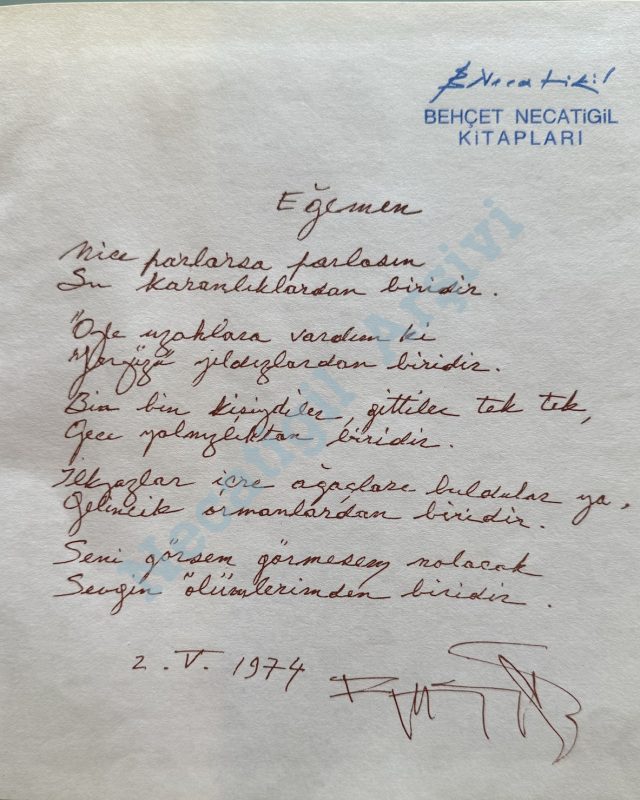 B Necatigil
BEHÇET NECATİGİL
KİTAPLARI
Eğemen
Nice parlarsa parlasın
Su karanlıklardan biridir.
Öyle uzaklara vardım ki
Yeryüzü yıldızlardan biridir.
Bin bin kişiydiler, gittiler tek tek,
Gece yalnızlıktan biridir.
İlkyazlar içre ağaçları buldular ya,
Gelincik ormanlardan biridir.
Seni görsem görmesem nolacak
Sevgin ölümlerimden biridir.
2.V.1974
Necatigil Arşivi